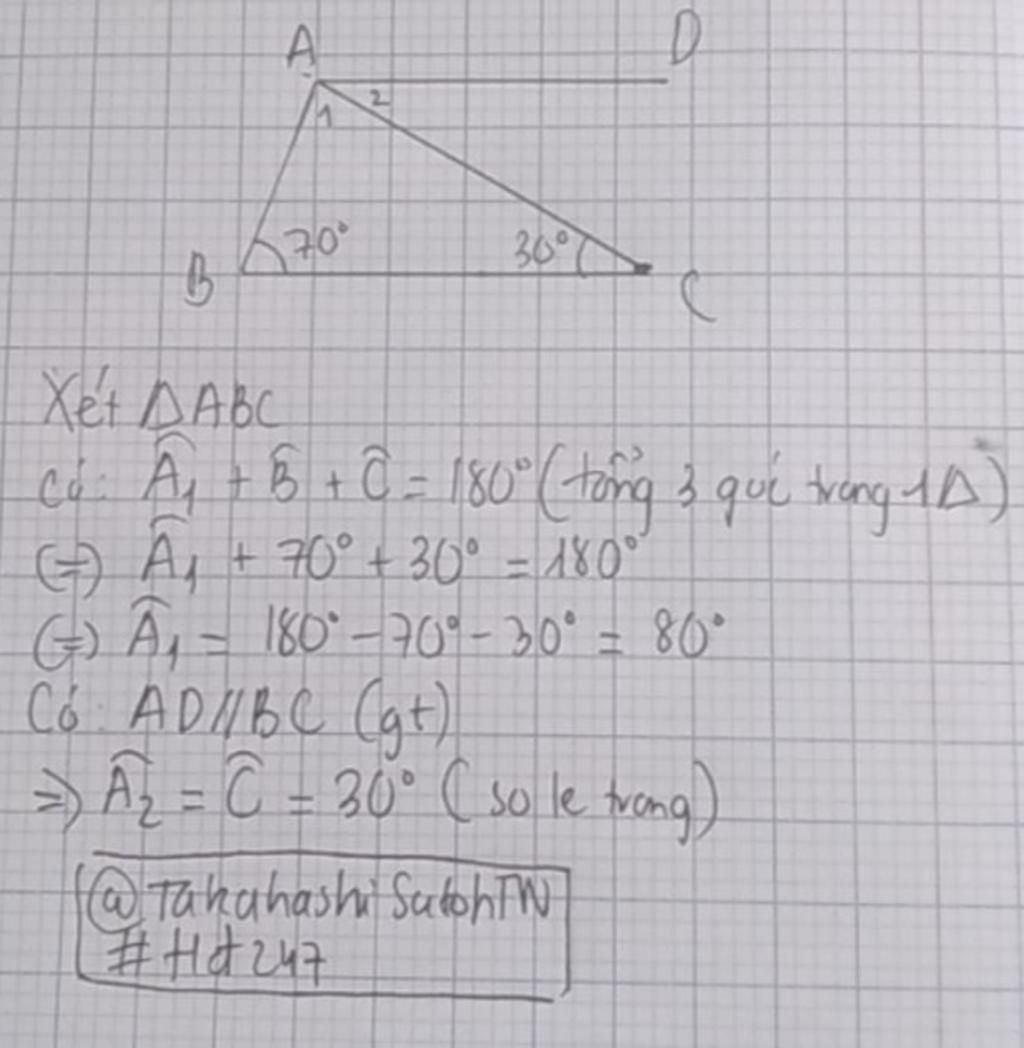 A D
1 2
B 70° 30° C
Xét ΔABC
Có: Â₁ + B̂ + Ĉ = 180° (tổng 3 góc trong 1Δ)
(=) Â₁ + 70° + 30° = 180°
(=) Â₁ = 180° - 70° - 30° = 80°
Có: AD//BC (gt)
=> Â₂ = Ĉ = 30° (so le trong)
@TakahashiSatohTW
#Hd247